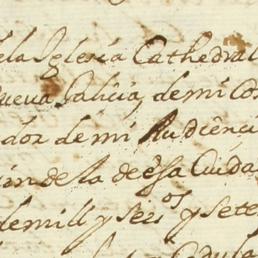 ela Iglesia Cathedral
ueva Galicia, de mi Co
dor de mi Audienci
ion de la de essa Ciuda
de mill y seis os y sete